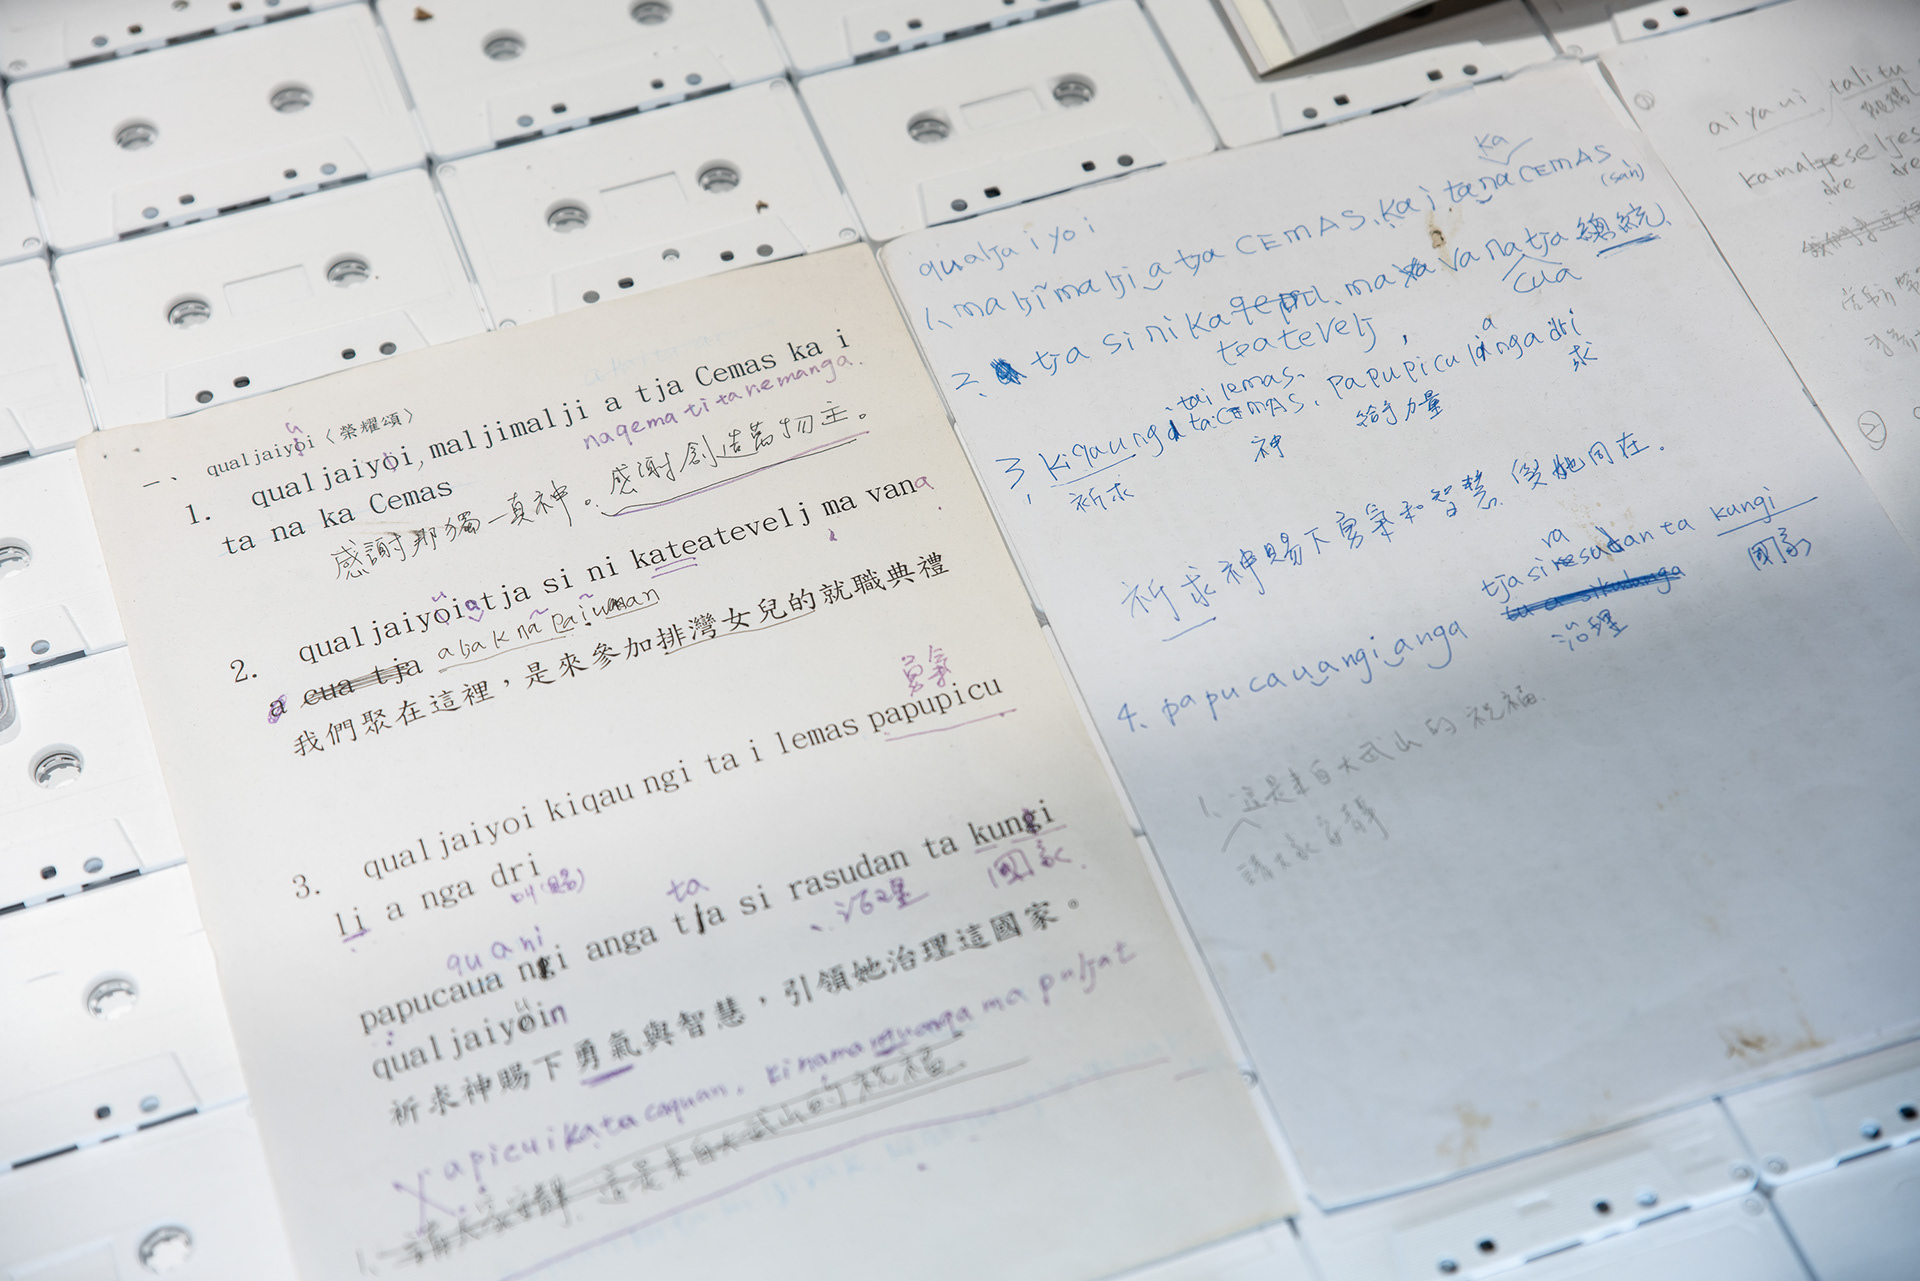 一、 qualjaiyoi〈榮耀頌〉
u
1. qualjaiyoi, maljimalji a tja Cemas ka i
naqemati ta nemanga.
ta na ka Cemas
感謝那獨一真神。感謝創造萬物主。
2. qualjaiyoi a tja si ni kateatevelj ma vana
a cua tja aljak na paiuan
我們聚在這裡，是來參加排灣女兒的就職典禮
勇氣
3. qualjaiyoi kiqau ngi ta i lemas papupicu
li a nga dri
quani
ta
papucaua ngi anga tja si rasudan ta kungi
治理
國家
qualjaiyoin
祈求神賜下勇氣與智慧，引領她治理這國家。
apicui kata caquan. kinamaquanga ma puljat
1. 請大家安靜 這是來自大武山的祝福.
qualjaiyoi
ka
1、maljimalji a tja CEMAS. ka i tana CEMAS
(san)
2、tja si ni ka qepu. ma vana tja 總統.
teatevelj,
cua
3、kiqaunga tai CEMAS. papupicu langa dri
tai lemas.
a
祈求
神
給予力量
求
祈求神賜下勇氣和智慧. 與她同在.
ra
tjasiresudan ta kungi
4、papucauangianga
治理
國家
1、這是來自大武山的祝福.
請大家安靜
①
aiyaui talitu
kamaljeseljes
dre dre
②